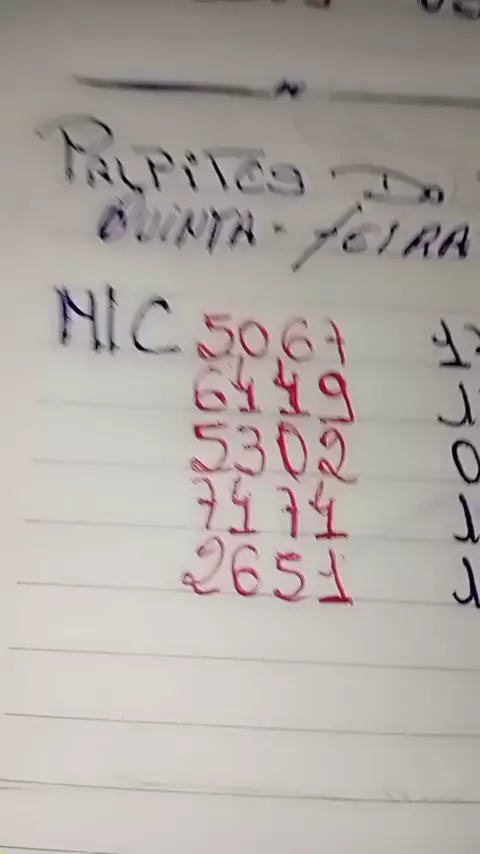 PALPITES DO
QUINTA-FEIRA
MIC 5067
6449
5302
7474
2651